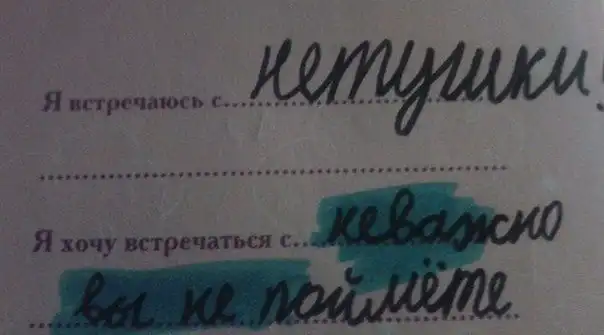 Я встречаюсь с... нетушки!
Я хочу встречаться с... неважно
вы не поймёте